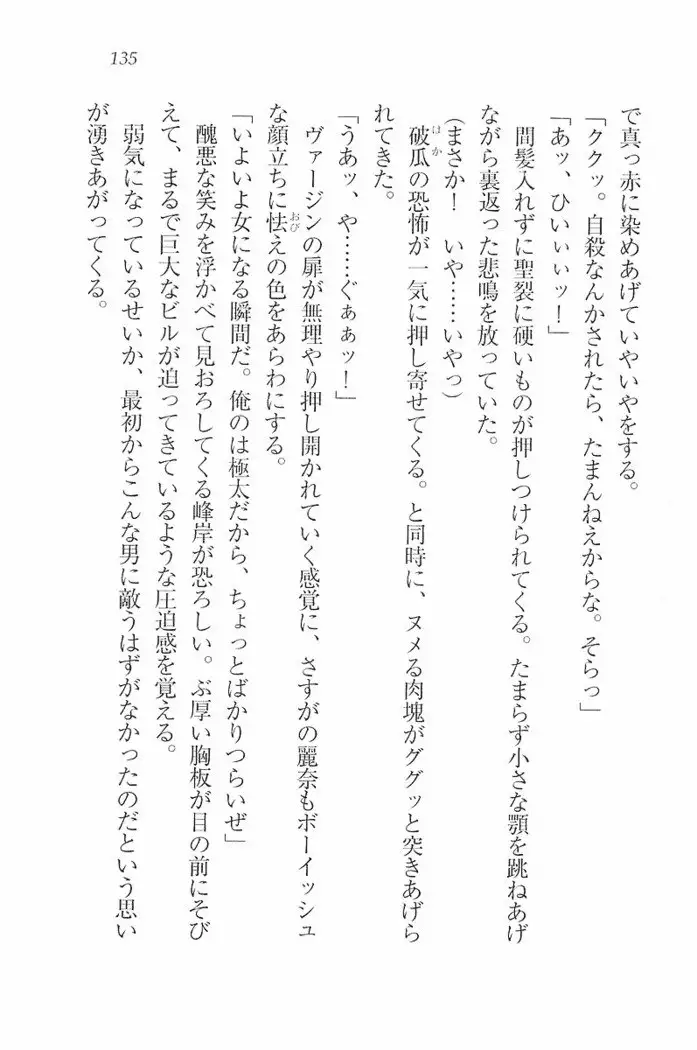 135
で真っ赤に染めあげていやいやをする。
「ククッ。自殺なんかされたら、たまんねえからな。そらっ」
「あッ、ひいぃぃッ！」
間髪入れずに聖裂に硬いものが押しつけられてくる。たまらず小さな顎を跳ねあげ
ながら裏返った悲鳴を放っていた。
(まさか！　いや……いやっ)
破瓜の恐怖が一気に押し寄せてくる。と同時に、ヌメる肉塊がググッと突きあげら
れてきた。
「うあッ、や……ぐぁぁッ！」
ヴァージンの扉が無理やり押し開かれていく感覚に、さすがの麗奈もボーイッシュ
な顔立ちに怯えの色をあらわにする。
「いよいよ女になる瞬間だ。俺のは極太だから、ちょっとばかりつらいぜ」
醜悪な笑みを浮かべて見おろしてくる峰岸が恐ろしい。ぶ厚い胸板が目の前にそび
えて、まるで巨大なビルが迫ってきているような圧迫感を覚える。
弱気になっているせいか、最初からこんな男に敵うはずがなかったのだという思い
が湧きあがってくる。